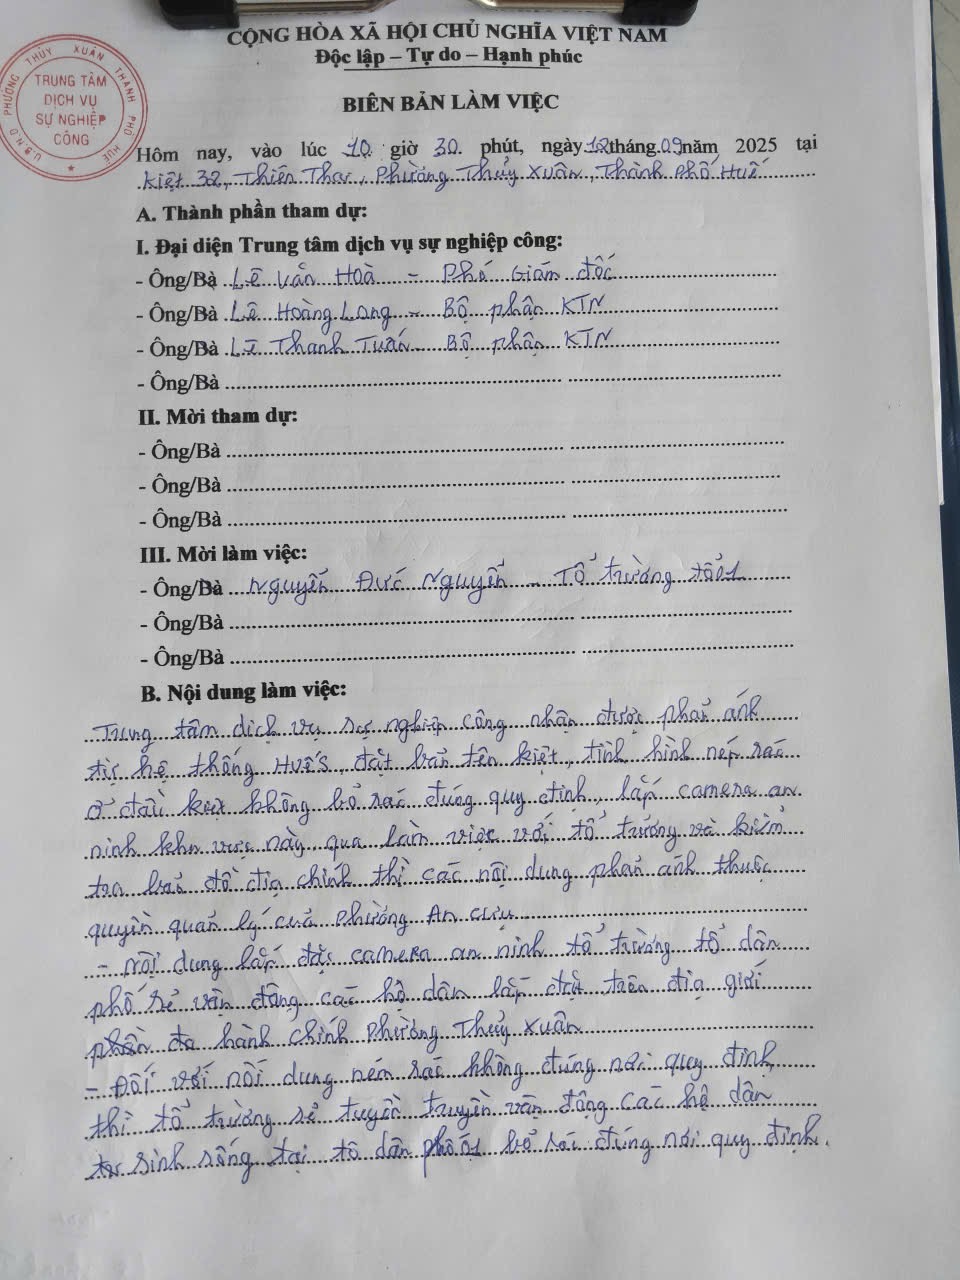 CỘNG HÒA XÃ HỘI CHỦ NGHĨA VIỆT NAM
Độc lập – Tự do – Hạnh phúc
U.B.N.D PHƯỜNG THỦY XUÂN THÀNH PHỐ HUẾ
TRUNG TÂM
DỊCH VỤ
SỰ NGHIỆP
CÔNG
BIÊN BẢN LÀM VIỆC
Hôm nay, vào lúc 10 giờ 30 phút, ngày 12 tháng 09 năm 2025 tại
Kiệt 32, Thiên Thai, Phường Thuỷ Xuân, Thành Phố Huế
A. Thành phần tham dự:
I. Đại diện Trung tâm dịch vụ sự nghiệp công:
- Ông/Bà Lê Văn Hoà - Phó Giám đốc
- Ông/Bà Lê Hoàng Long - Bộ phận KTN
- Ông/Bà Lê Thanh Tuấn - Bộ phận KTN
- Ông/Bà
II. Mời tham dự:
- Ông/Bà
- Ông/Bà
- Ông/Bà
III. Mời làm việc:
- Ông/Bà Nguyễn Đức Nguyễn - Tổ trưởng tổ 1
- Ông/Bà
- Ông/Bà
B. Nội dung làm việc:
Trung tâm dịch vụ sự nghiệp công nhận được phản ánh
từ hệ thống HueS, đặt bản tên kiệt, tình hình ném rác
ở đầu kiệt không bỏ rác đúng quy định, lắp camera an
ninh khu vực này qua làm việc với tổ trưởng và kiểm
tra bản đồ địa chính thì các nội dung phản ánh thuộc
quyền quản lý của Phường An Cựu
- Nội dung lắp đặt camera an ninh tổ trưởng tổ dân
phố sẽ vận động các hộ dân lắp đặt trên địa giới
phần đa hành chính Phường Thuỷ Xuân
- Đối với nội dung ném rác không đúng nơi quy định,
thì tổ trưởng sẽ tuyên truyền vận động các hộ dân
sinh sống tại tổ dân phố 1 bỏ rác đúng nơi quy định.